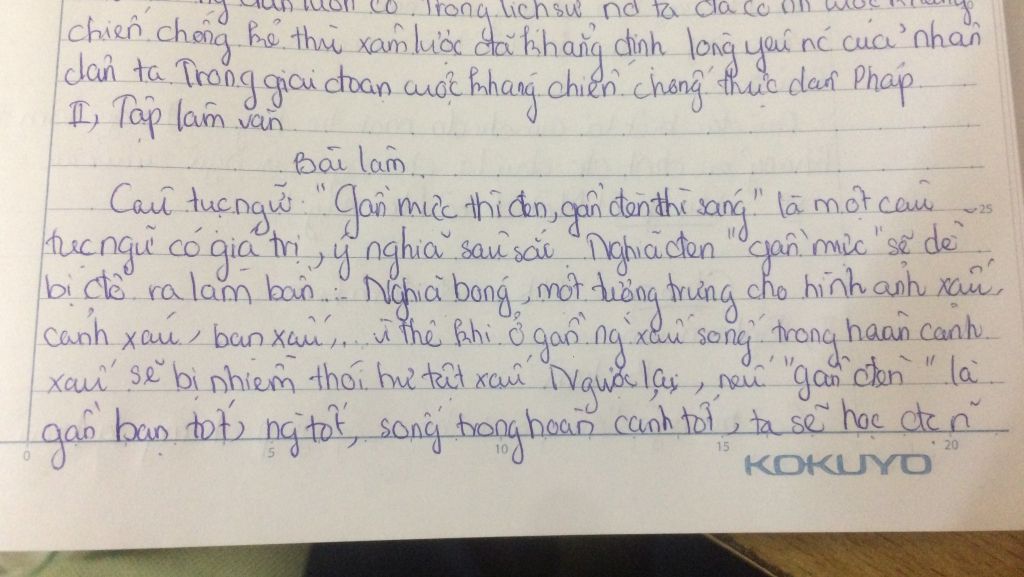 luôn có. Trong lịch sử nd ta đã có nh cuộc kháng
chiến chống kẻ thù xâm lược đã khẳng định lòng yêu nc của nhân
dân ta. Trong giai đoạn cuộc kháng chiến chống thực dân Pháp
II, Tập làm văn
Bài làm.
Câu tục ngữ: "Gần mực thì đen, gần đèn thì sáng" là một câu
25
tục ngữ có giá trị, ý nghĩa sâu sắc. Nghĩa đen "gần mực" sẽ dễ
bị đổ ra làm bẩn... Nghĩa bóng, một tượng trưng cho hình ảnh xấu,
cảnh xấu, bạn xấu,... vì thế khi ở gần ng xấu sống trong hoàn cảnh
xấu sẽ bị nhiễm thói hư tật xấu. Ngược lại, nếu "gần đèn" là
gần bạn tốt, ng tốt, sống trong hoàn cảnh tốt, ta sẽ học đc n~
0 5 10 15 20
KOKUYO